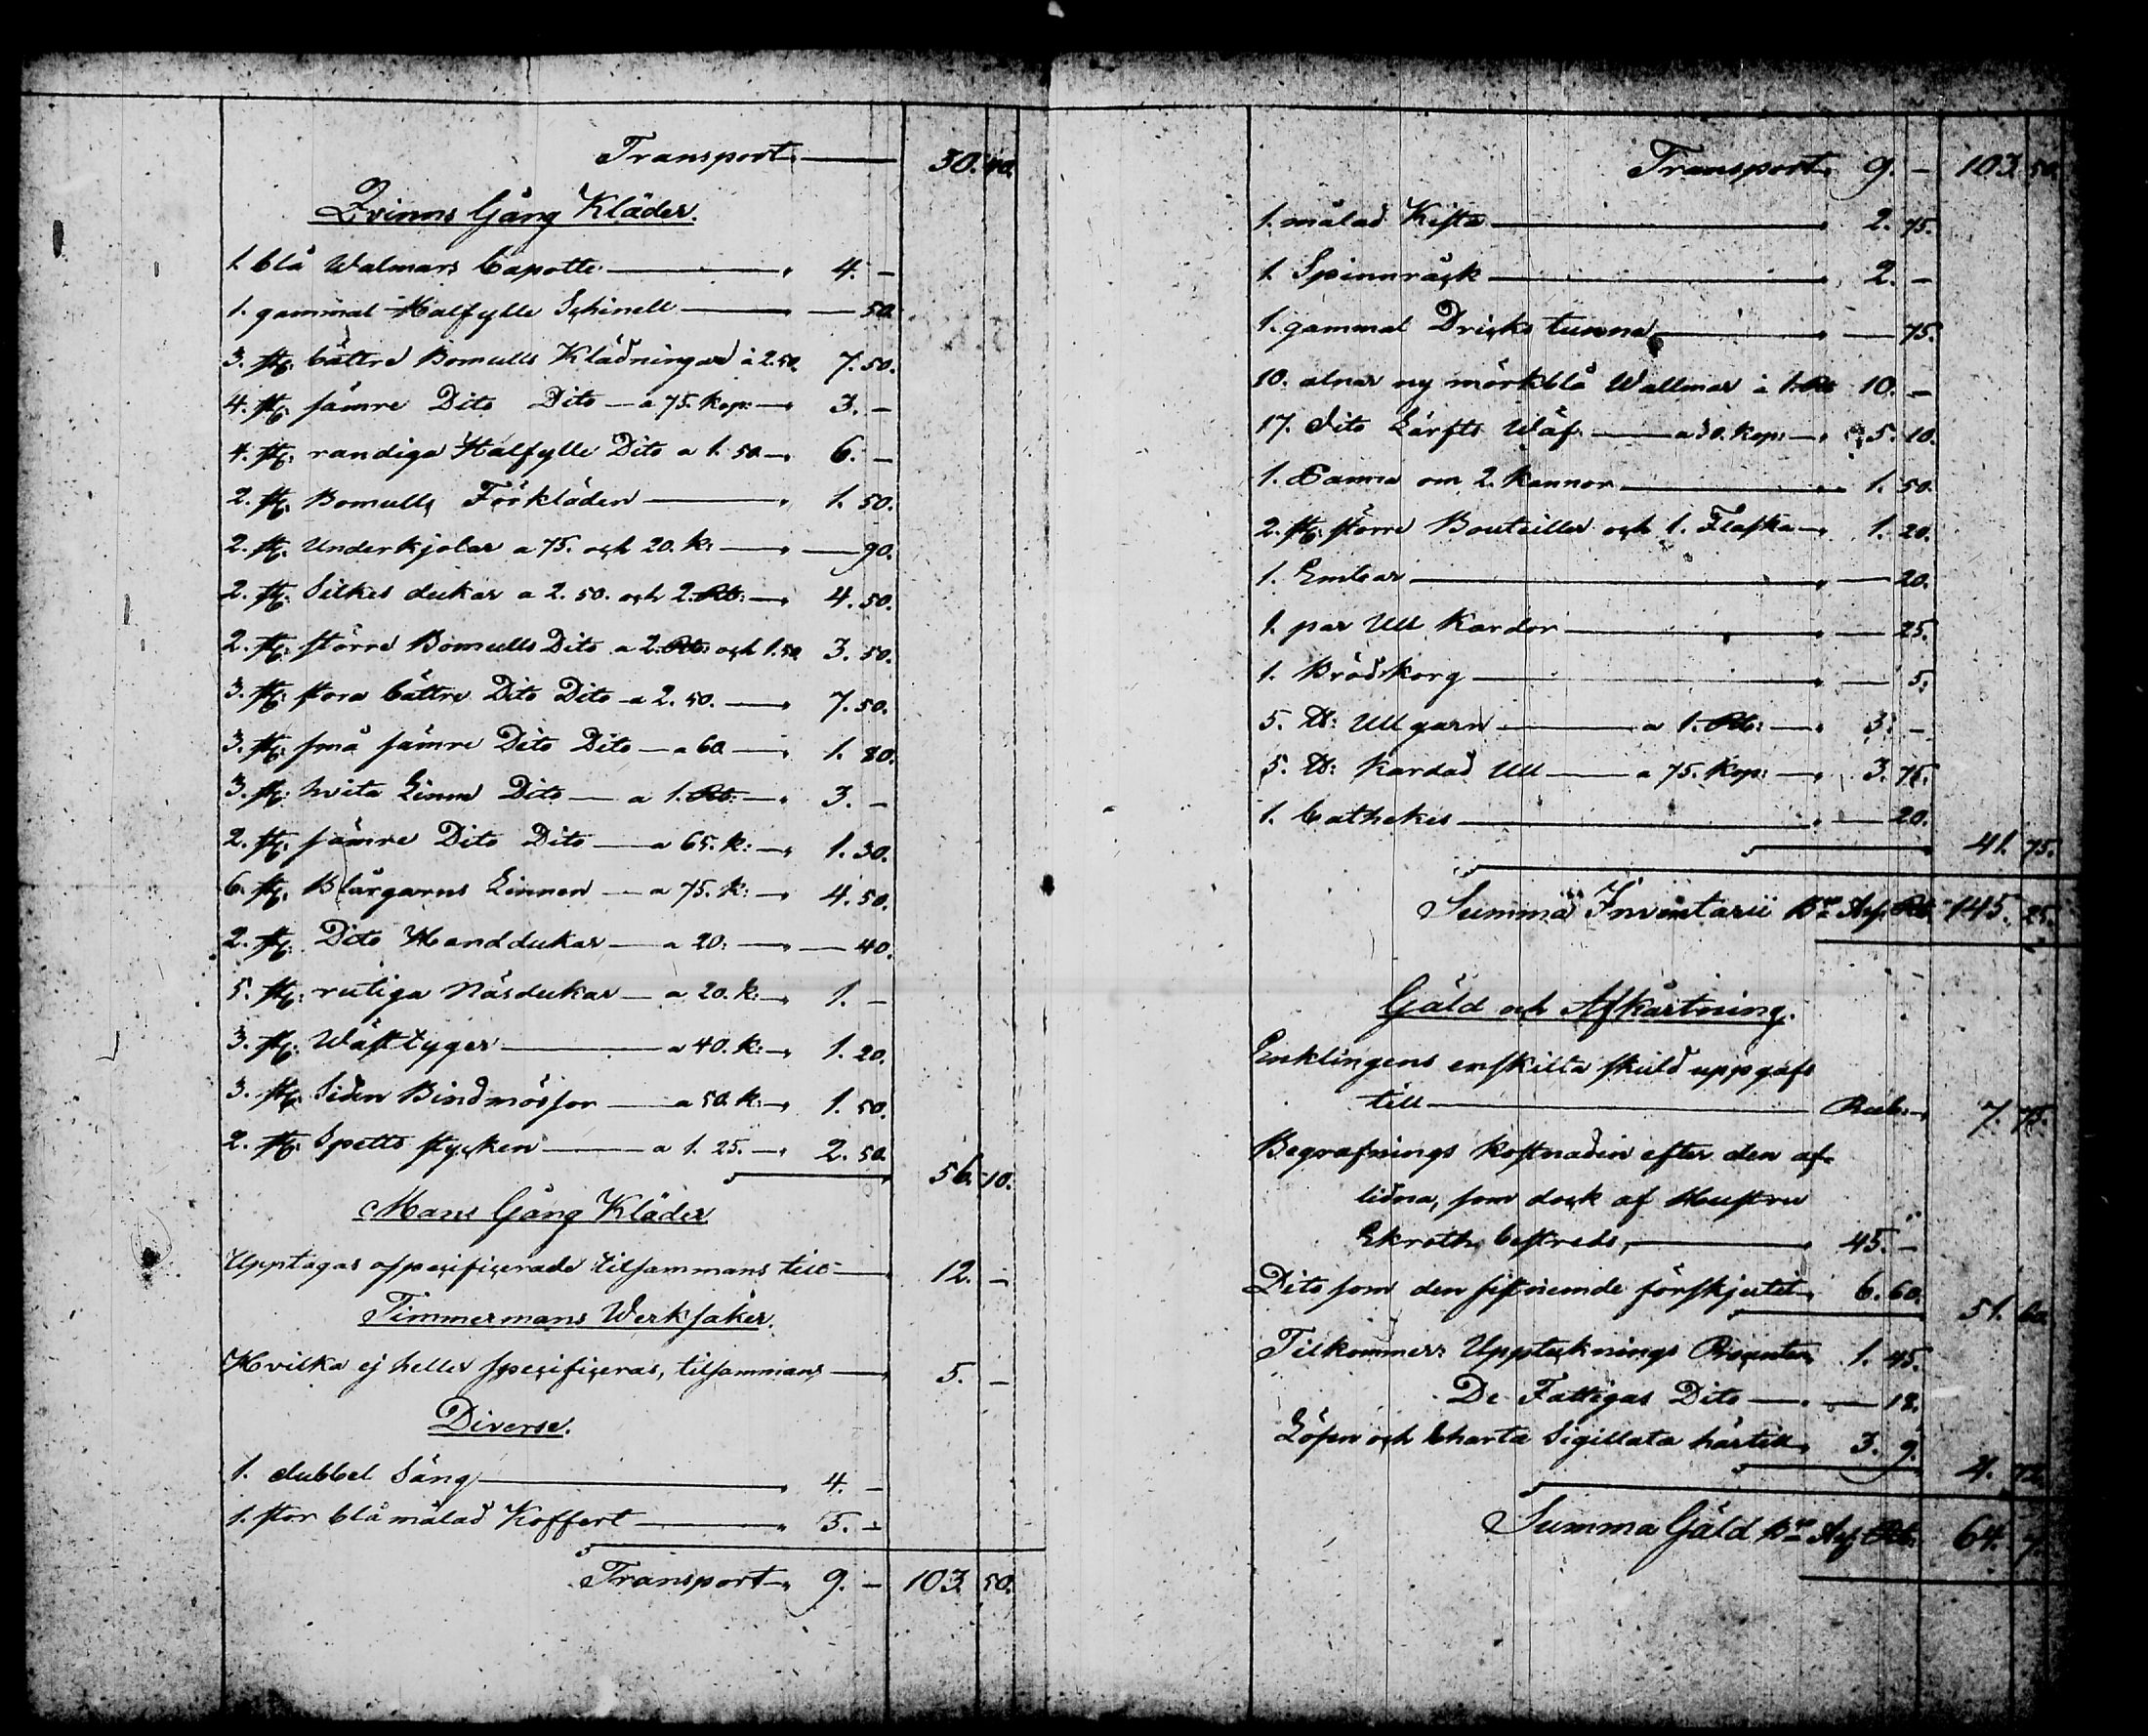 Transport 30. 40.
Qvinns Gång Kläder.
1. blå Walmars Capotte 4. –
1. gammal Halfylle Schinell — 50.
3. st: bättre Bomulls Klädningar à 2.50. 7. 50.
4. st: sämre Dito Dito — a 75. kop: 3. –
4. st: randiga Halfylle Dito a 1. 50. 6. –
2. st. Bomulls Förkläden 1. 50.
2. st. Underkjolar a 75. och 20. k: — 90.
2. st. Silkes dukar a 2. 50. och 2. Rb: 4. 50.
2. st. större Bomulls Dito a 2. Rb: och 1.50. 3. 50.
3. st: stora bättre Dito Dito a 2. 50. 7. 50.
3. st: små sämre Dito Dito — a 60 1. 80.
3. st: hvita Linne Dito — a 1. Rb: 3. –
2. st. sämre Dito Dito — a 65. k: 1. 30.
6. st. Blårgarns Linnen — a 75. k: 4. 50.
2. st. Dito Handdukar — a 20: — 40.
5. st: rutiga Näsdukar — a 20. k: 1. –
3. st. Wäst tyger — a 40. k: 1. 20.
3. st. Siden Bindmössor — a 50. k: 1. 50.
2. st. Spetts stycken — a 1. 25. 2. 50.
56. 10.
Mans Gång Kläder
Upptagas ospecificerade tilsammans till 12. –
Timmermans Werksaker.
Hvilka ej heller specificeras, tilsammans 5. –
Diverse.
1. dubbel Säng 4. –
1. stor blå målad Koffert 5. –
Transport 9. – 103. 50.
Transport 9. – 103. 50.
1. målad Kista 2. 75.
1. Spinnråck 2. –
1. gammal Dricks tunna — 75.
10. alnar ny mörkblå Wallmar à 1. Rb 10. –
17. dito Lärfts Wäf a 30. kop: 5. 10.
1. Kanna om 2. kannor 1. 50.
2. st. större Bouteiller och 1. Flaska 1. 20.
1. Embar — 20.
1. par Ull Kardor — 25.
1. Brödkorg — 5.
5. ℔: Ullgarn a 1. Rb: 5. –
5. ℔: Kardad Ull a 75. kop: 3. 75.
1. Cathekes — 20.
41. 75.
Summa Inventarii B:co Ass. Rb. 145. 25.
Gäld och Afkårtning.
Enklingens enskilta skuld uppgafs
till Rub: 7. 75.
Begrafnings kostnaden efter den af-
lidna, som dock af Hustru
Ekroth bestreds, 45. –
Dito som den sistnemde förskjutit 6. 60.
51. 60.
Tilkommer: Upptecknings Procenten 1. 45.
De Fattigas Dito — 18.
Lösen och Charta Sigillata härtill 3. 9.
4. 72.
Summa Gäld B:co Ass. Rb. 64. 7.